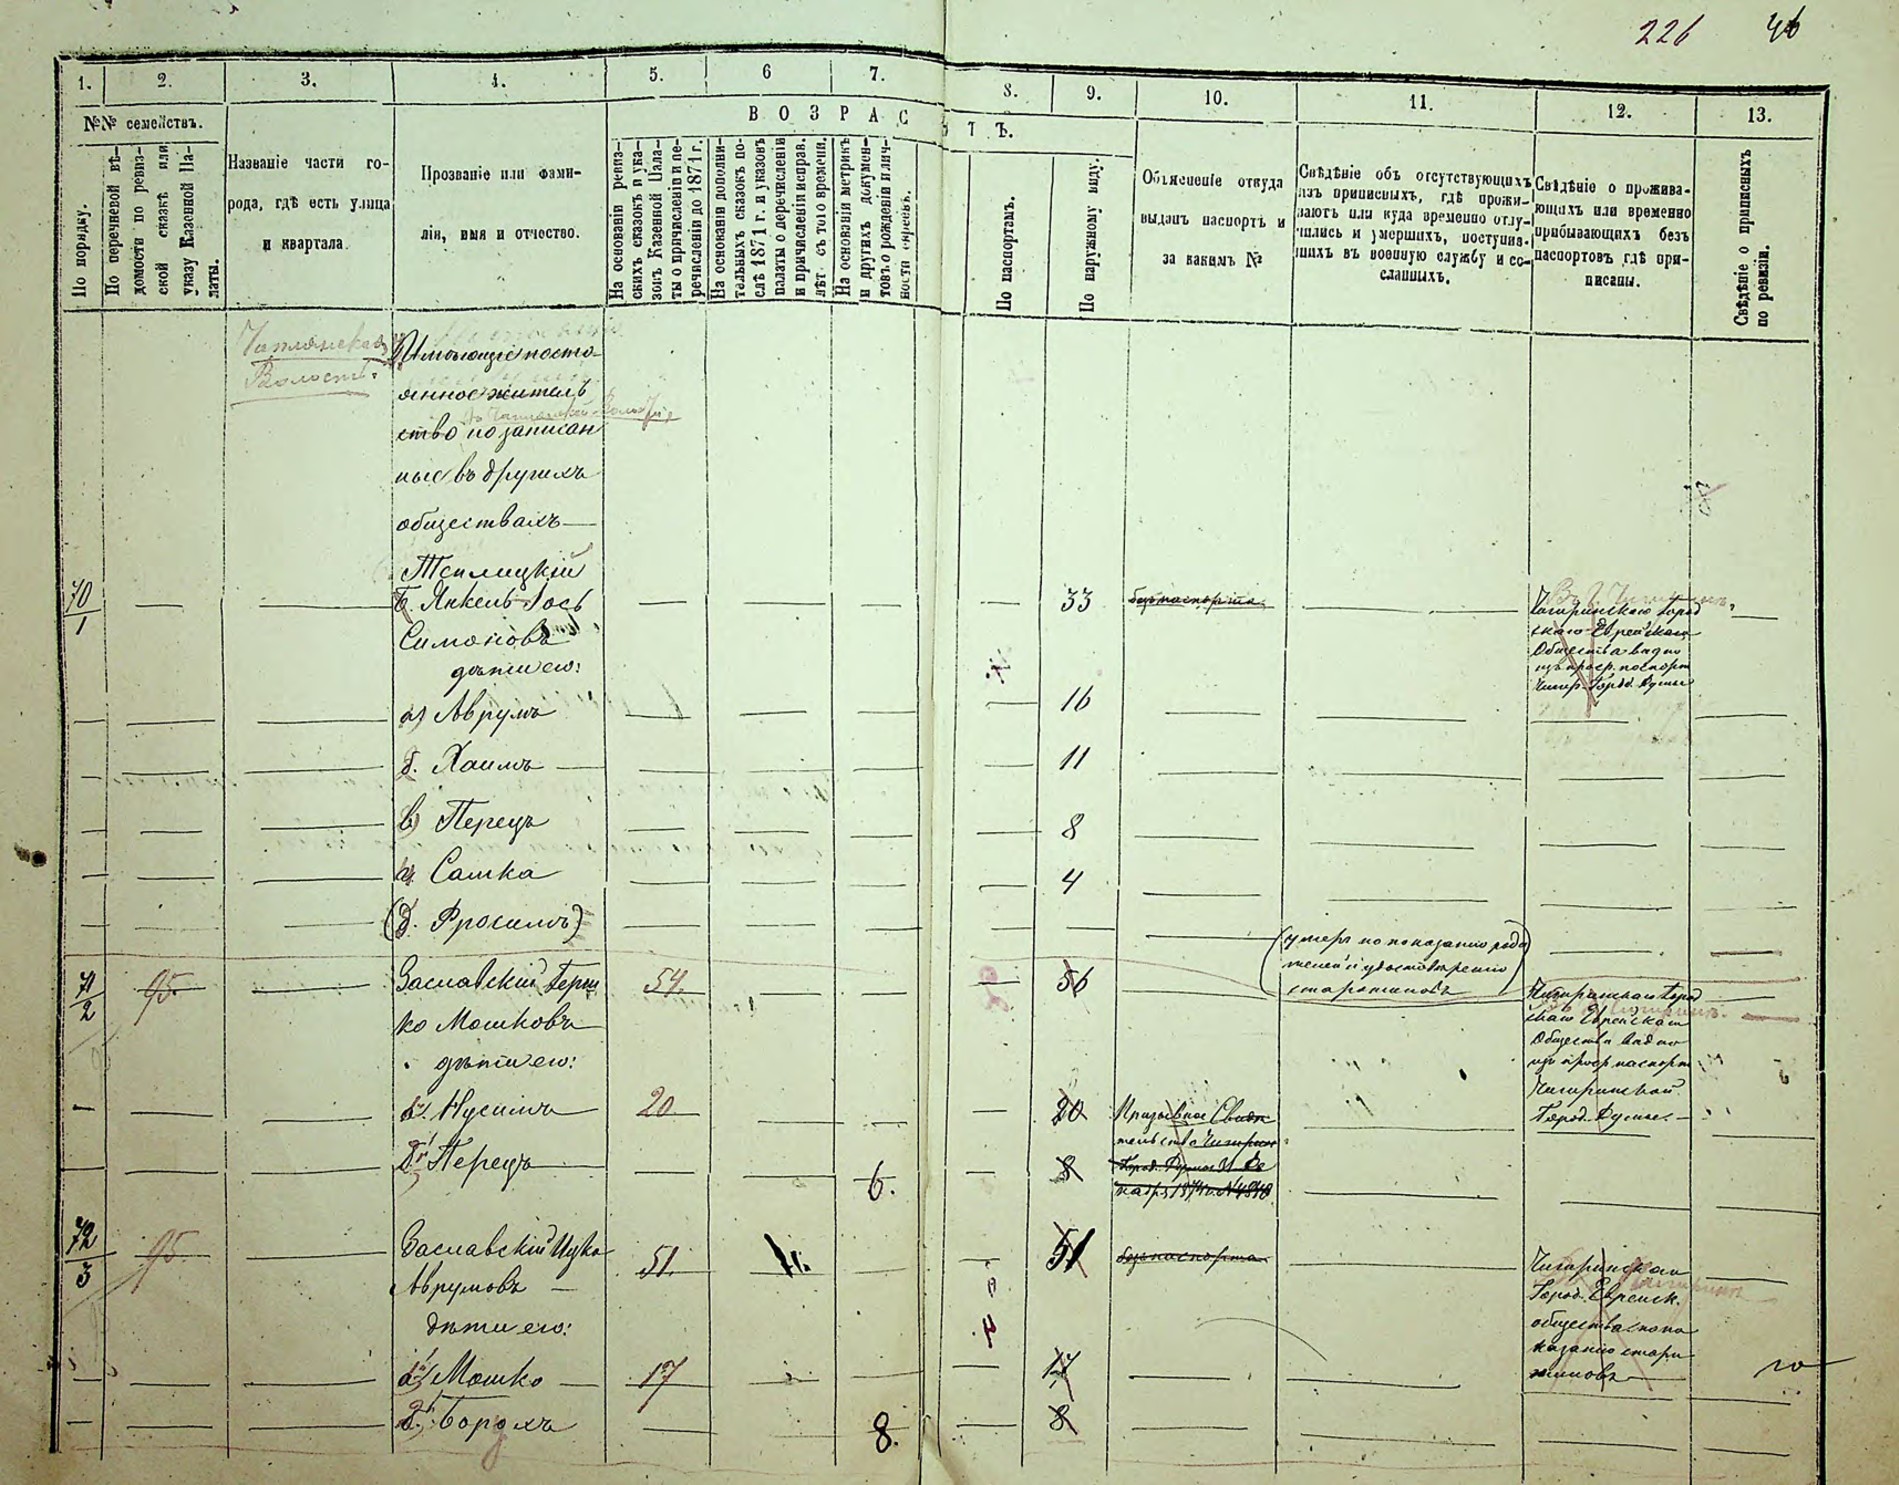 226 46
1. 2. 3. 4. 5. 6 7. 8. 9. 10. 11. 12. 13.
№№ семействъ.
В О З Р А С Т Ъ.
По порядку.
По перечневой вѣ-
домости по ревиз-
ской сказкѣ или
указу Казенной Па-
латы.
Названіе части го-
рода, гдѣ есть улица
и квартала.
Прозваніе или фами-
лія, имя и отчество.
На основаніи ревиз-
скихъ сказокъ и ука-
зокъ Казенной Пала-
ты о причисленіи и пе-
речисленіи до 1871 г.
На основаніи дополни-
тельныхъ сказокъ по-
слѣ 1871 г. и указовъ
палаты о перечисленіи
и причисленіи исправ.
лѣт съ того времени.
На основаніи метрикъ
и другихъ докумен-
товъ о рожденіи и лич-
ности евреевъ.
По паспортамъ.
По наружному виду.
Объясненіе откуда
выданъ паспортъ и
за какимъ №
Свѣдѣніе объ отсутствующихъ
изъ приписныхъ, гдѣ прожи-
ваютъ или куда временно отлу-
чились и умершихъ, поступив-
шихъ въ военную службу и со-
сланныхъ.
Свѣдѣніе о прожива-
ющихъ или временно
прибывающихъ безъ
паспортовъ гдѣ при-
писаны.
Свѣдѣніе о приписныхъ
по ревизіи.
Волость.
Имѣющіе посто-
янное житель
ство но записан
ные въ другихъ
обществахъ
Теплицкій
70/1 Янкель Іось 33 безъ паспорта
Симоновъ
дѣти его:
Чигринскаго Город
скаго Еврейскаго
Общества видно
изъ проср. паспорт
Чигр. Город. Думы
а) Аврумъ 16
б. Хаимъ 11
в) Перецъ 8
Сашка 4
(д. Фроимъ)
(умеръ по показанію роди
телей и удостовѣренію
старожиловъ)
71/2 95. Заславскій Герш 54. 56
ко Мошковъ
дѣти его:
Чигринскаго Город
скаго Еврейскаго
Общества видно
изъ проср паспорт
Чигринской
Город. Думы.
а) Нусимъ 20. 20 Призывное Свидѣ
тельство Чигрин
Город. Думы
1874 г. №
б) Перецъ 6. 8
72/3 95. Заславскій Ицко 51. 11. 51 безъ паспорта
Аврумовъ
дѣти его:
Чигринскаго
Город. Еврейск.
общества по по
казанію старо
жиловъ
а) Мошко 17 17
б) Борохъ 8. 8